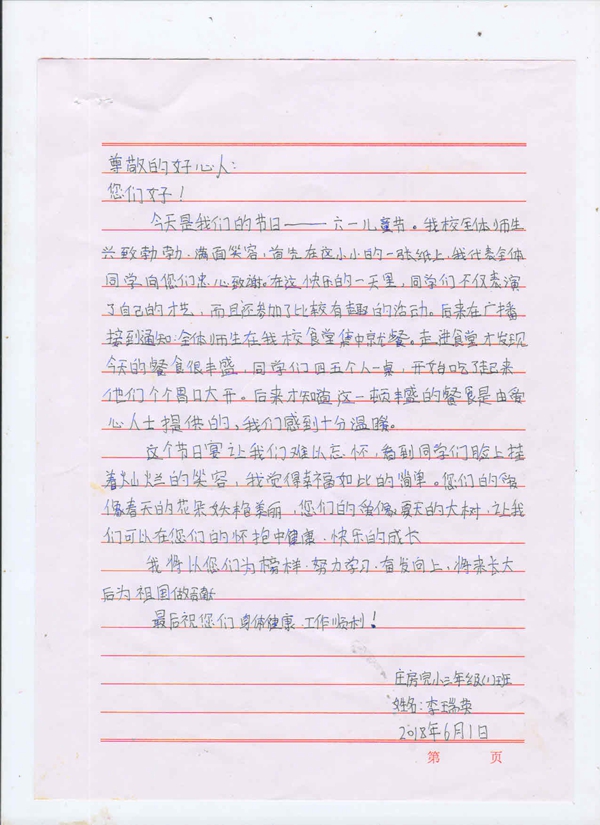 尊敬的好心人：
您们好！
今天是我们的节日——六一儿童节。我校全体师生
兴致勃勃．满面笑容，首先在这小小的一张纸上，我代表全体
同学向您们忠心致谢。在这快乐的一天里，同学们不仅表演
了自己的才艺，而且还参加了比较有趣的活动。后来在广播
接到通知：全体师生在我校食堂集中就餐。走进食堂才发现
今天的餐食很丰盛，同学们四五个人一桌，开始吃起来
他们个个胃口大开。后来才知道这一顿丰盛的餐食是由爱
心人士提供的，我们感到十分温暖。
这个节日宴让我们难以忘怀，看到同学们脸上挂
着灿烂的笑容，我觉得幸福如此的简单。您们的爱
像春天的花朵娇艳美丽，您们的爱像夏天的大树．让我
们可以在您们的怀抱中健康．快乐的成长
我将以您们为榜样．努力学习．奋发向上，将来长大
后为祖国做贡献
最后祝您们身体健康．工作顺利！
庄房完小三年级(1)班
姓名：李瑞英
2018年6月1日
第 页